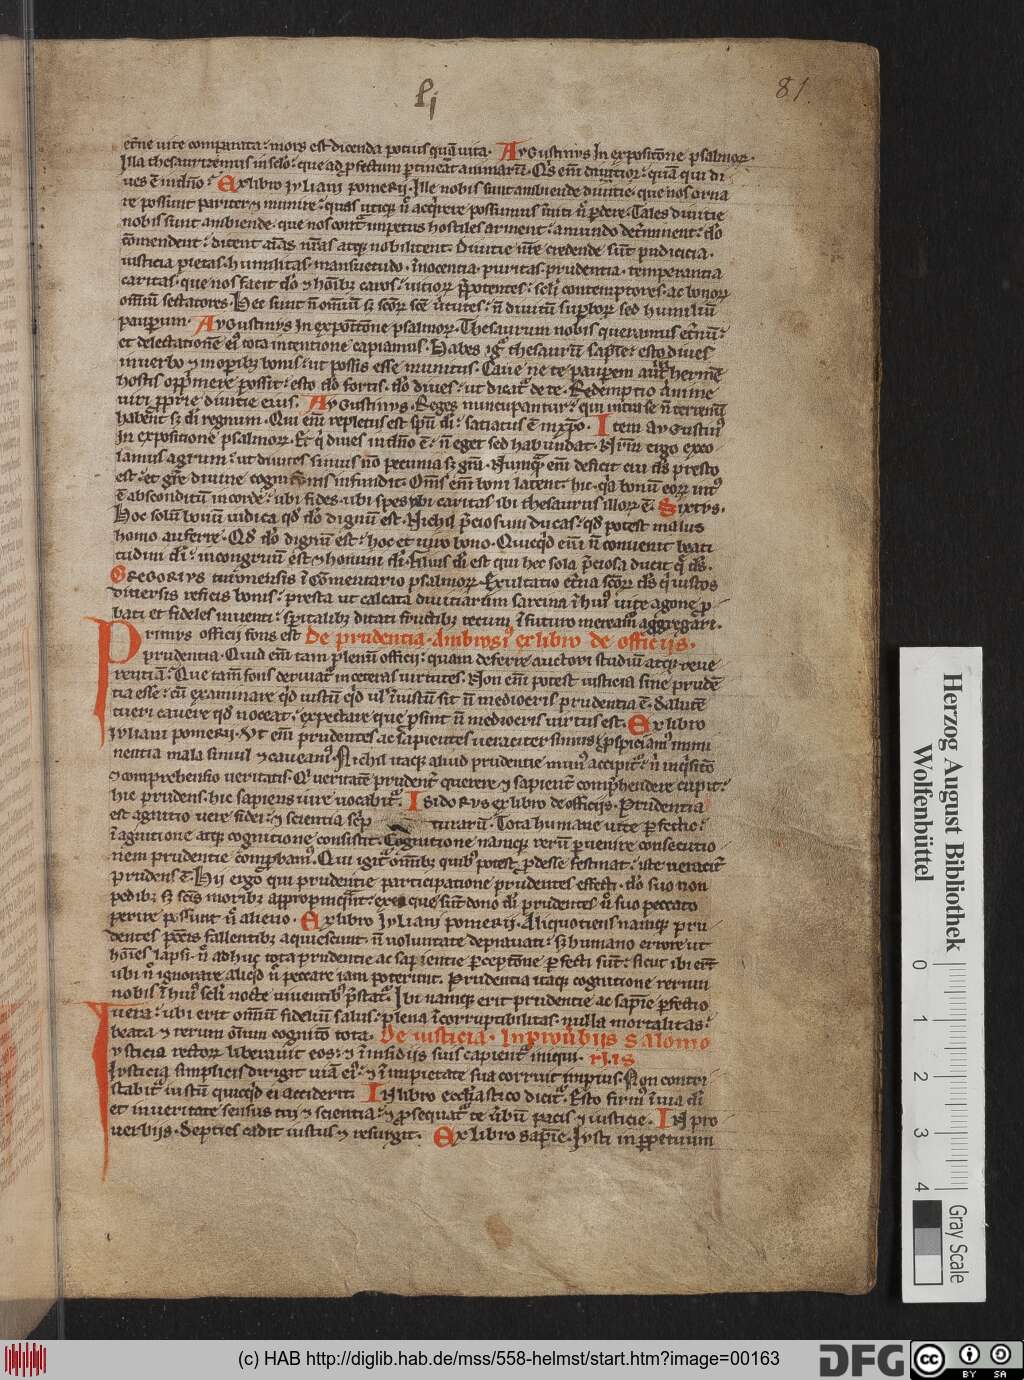 lj
81
et̄ne uite comparata: mors est dicenda potius quā uita. Aygustinys In expositōne psalmoꝝ.
Illa thesaurizemus in selo: que ad ꝑfectum ꝑtineāt animarū. Q's eni diuitior: quā qui di
ues ē in dn̄o? Ex libro iyliani pomerij. Ille nobis sunt ambiende diuitie. que nos orna
re possunt pariter ⁊ munire: quas utiqꝫ n̄ acq̄rere possumus inuiti n̄ ꝑdere. Tales diuitie
nobis sunt ambiende. que nos contͣ impetus hostiles arment: a mundo det̄minent: dō
cōmendent: ditent aīas nr̄as atqꝫ nobilitent. Diuitie nr̄e credende sūt pudicicia.
iusticia pietas. humilitas. mansuetudo. īnocentia. puritas. prudentia. temperantia
caritas. que nos facit dō ⁊ hōibꝫ caros: uitioꝝ p̄potentes: seli contemptores. ac bonoꝝ
om̄iū sectatores. Hec sunt n̄ om̄ium sꝫ scōꝝ sce uirtutes: n̄ diuitū supboꝝ sed humiliū
pauꝑum. Aygustinys In expoītōne psalmoꝝ. Thesaurum nobis queramus et̄nū:
et delectationē eī tota intentione capiamus. Habes igͣ thesaurū sapīe: esto diues
in uerbo ⁊ in opībꝫ bonis: ut possis esse munitus. Caue ne te pauꝑem
hostis opp̄mere possit: esto dō fortis. dō diues: ut dicatͣ de te. Redemptio anime
uiri ꝓprie diuitie eius. Aygustinys. Reges nuncupantur: qui intra se n̄ terrenū
habent sꝫ di regnum. Qui eni repletus est spū di: satiatus ē in xp̄o. Item Aygustin'
In expositione psalmoꝝ. Et q diues in dn̄o ē: n̄ eget sed habundat. ergo exco
lamus agrum: ut diuites simus nō pecunia sꝫ grā. Nunqͣ eni deficit cui ds presto
est: et grē diuine cognitionis infundit. Om̄is eni boni latent: hic. qa bonū eoꝝ int'
ē absconditū in corde: ubi fides. ubi spes ubi caritas ibi thesaurus illoꝝ ē. Sixtys.
Hoc solū bonū iudica qd dō dignū est. Nichil p̄ciosum ducas: qd potest malus
homo auferre. Qd dō dignū est: hoc et uiro bono. Quicqd eni n̄ conuenit beati
tudini di: incongruū est ⁊ homini di. Filius di est qui hec sola p̄ciosa ducit q ds.
Gregoriys turonensis ī cōmentario psalmoꝝ. Exultatio et̄na scōꝝ ds q iustos
diuersis reficis bonis: presta ut calcata diuitiarum sarcina ī hui' uite agone ꝓ
bati et fideles inuenti: spītalibꝫ ditati fructibꝫ tecum ī futuro mereamͣ aggregari.
Primys officij fons est De prudentia. Ambrosi' ex libro de officijs.
prudentia. Quid eni tam plenū officij: quam deferre auctori studiū atqꝫ reue
rentiā: Que tamn̄ fons deriuatͣ in ceteras uirtutes. Non eni potest iusticia sine prudē
tia esse: cū examinare qd iustū qd uł īiustū sit n̄ mediocris prudentia ē. Salutē
tueri cauere qd noceat. expectare que ꝓsint n̄ mediocris uirtus est. Ex libro
iyliani pomerij. Vt eni prudentes ac sapientes ueraciter simus ꝓspiciam' inmi
nentia mala simul ⁊ caueam'. Nichil itaqꝫ aliud prudentie mun' accipitͣ: n̄ inq̄sitō
⁊ comprehensio ueritatis. Q' ueritatē prudent̄ querere ⁊ sapient̄ comp̄hendere cupit:
hic prudens. hic sapiens iure uocabitͣ. Isidorys ex libro de officijs. Prudentia
est agnitio uere fidei: ⁊ scientia scrip tuiarū. Tota humane uite ꝑfectio:
ī agnitione atqꝫ cognitione consistit. Cognitione namqꝫ rerū ꝑuenire consecutio
nem prudentie comꝓbam'. Qui igitͣ om̄ibꝫ quib' potest ꝓdesse festinat: iste ueracit̄
prudens ē. Hij ergo qui prudentie participatione prudentes effecti. dō suo non
pedibꝫ sꝫ scis moribꝫ appropinquāt: que sūt dono di prudentes n̄ suo peccato
perire possunt n̄ alieno. Ex libro iyliani pomerij. Aliquotiens namqꝫ pru
dentes p̄ctis fallentibꝫ aquiescunt. n̄ uoluntate deprauati: sꝫ humano errore ut
hōies lapsi. n̄ adhuc tota prudentie ac sapientie ꝑceptōne ꝑfecti sūt: sicut ibi erūt
ubi n̄ ignorare aliqd n̄ peccare iam poterunt. Prudentia itaqꝫ cognitione rerum
nobis ī hui' seli nocte uiuentib' p̄statͣ. Ibi namqꝫ erit prudentie ac sapīe ꝑfectio
uera: ubi erit om̄iū fidelium salus: plena īcorruptibilitas. nulla mortalitas:
beata ⁊ rerum om̄ium cognitō tota. De iusticia. In prouerbijs Salomo
Iysticia rectoꝝ liberauit eos: ⁊ ī insidijs suis capientͣ iniqui. nis
Iysticia simplicis dirigit uiā ei': ⁊ ī impietate sua corruit impius. Non contri
stabitͣ iustū quicqd ei acciderit. In libro eccl̄iastico dicitͣ. Esto firm' ī uia di
et in ueritate sensus tui ⁊ scientia: ⁊ ꝓsequatͣ te ūbū pacis ⁊ iusticie. In pro
uerbijs. Septies cadit iustus ⁊ resurgit. Ex libro sapīe. Iysti in ꝑpetuum
Herzog August Bibliothek
Wolfenbüttel
0 1 2 3 4
Gray Scale
(c) HAB http://diglib.hab.de/mss/558-helmst/start.htm?image=00163
DFG
cc
BY SA